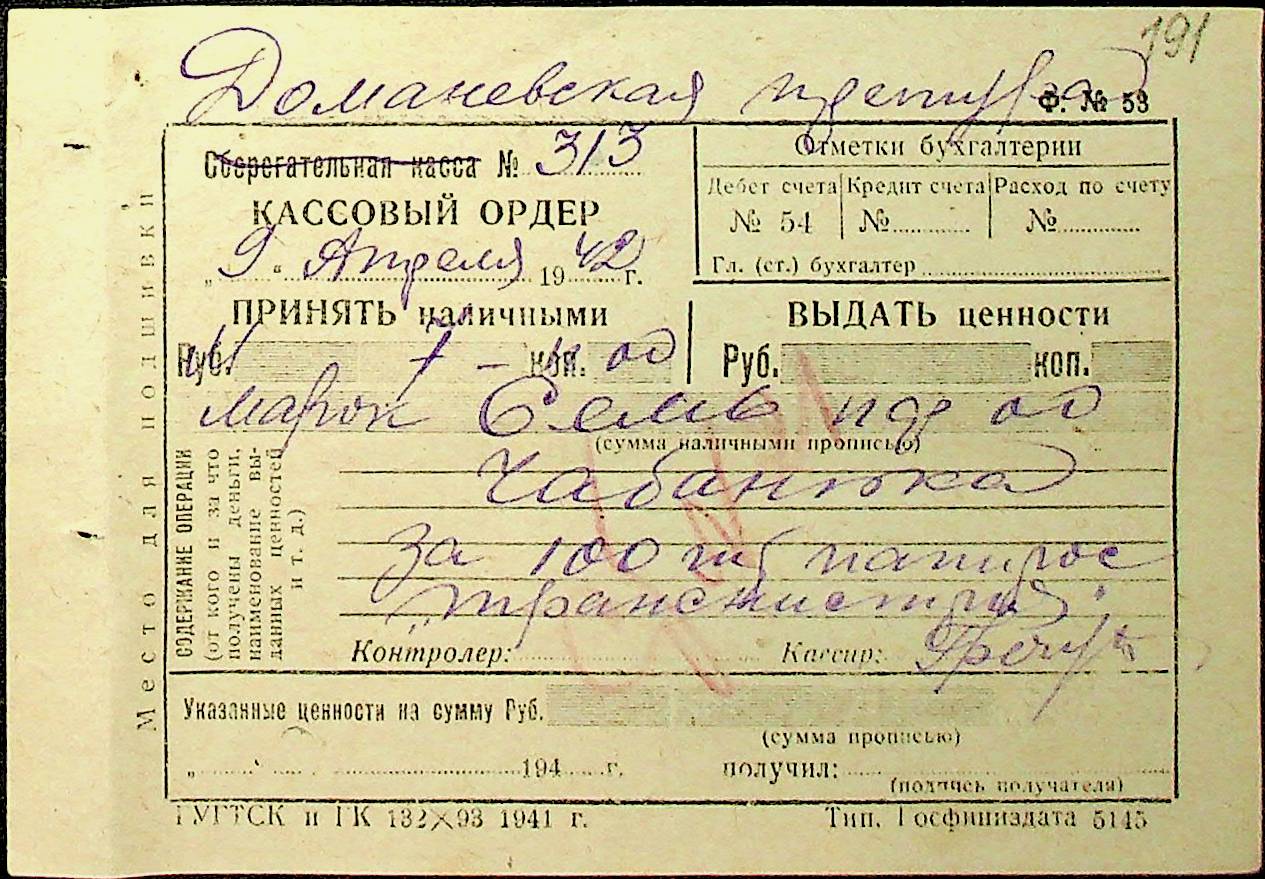 191
Домановская претура
Ф. № 53
Сберегательная касса № 313
КАССОВЫЙ ОРДЕР
„9“ Апреля 1942 г.
Отметки бухгалтерии
Дебет счета Кредит счета Расход по счету
№ 54 № №
Гл. (ст.) бухгалтер
ПРИНЯТЬ наличными
Руб. 7 – коп. 00
ВЫДАТЬ ценности
Руб. коп.
марок Семь пф 00
(сумма наличными прописью)
Чабанюка
за 100 шт папирос
„Транснистрия"
СОДЕРЖАНИЕ ОПЕРАЦИИ
(от кого и за что
получены деньги,
наименование вы-
данных ценностей
и т. д.)
Контролер: Кассир:
Указанные ценности на сумму Руб.
(сумма прописью)
„ “ 194 г. получил:
(подпись получателя)
ГУГТСК и ГК 132×93 1941 г. Тип. Госфиниздата 5145
Место для подшивки